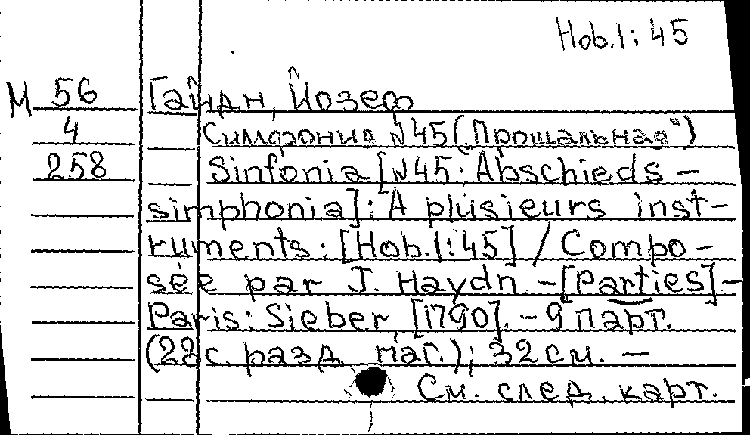 Hob.I:45
М 56 Гайдн, Йозеф
4 Симфония №45 („Прощальная")
258 Sinfonia [N45: Abschieds –
simphonia]: A plusieurs inst-
ruments: [Hob.I:45] / Compo-
sée par J. Haydn. – [Parties] –
Paris: Sieber, [1790]. – 9 парт.
(22 с. разд. паг.); 32 см. –
См. след. карт.